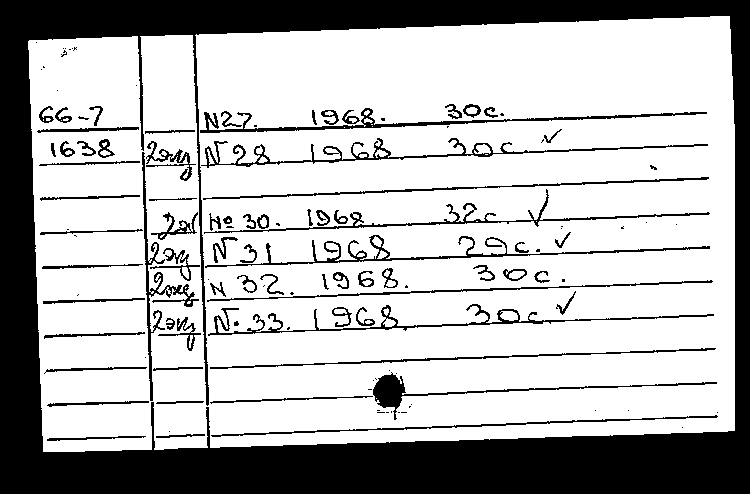 66-7 N27. 1968. 30с.
1638 2экз N28 1968 30с. ✓
2эк №30. 1968. 32с. ✓
2экз N31 1968 29с. ✓
2экз N 32. 1968. 30с.
2экз N.33. 1968. 30с ✓